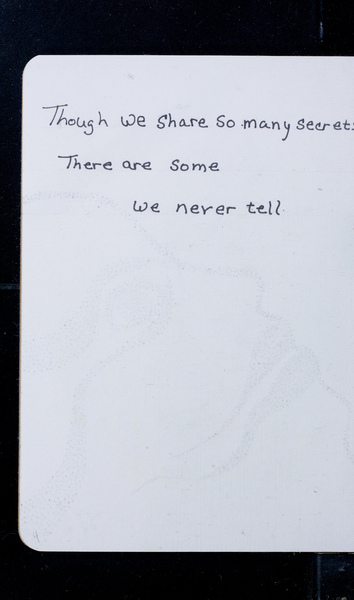 Though we share so many secrets
There are some
we never tell.